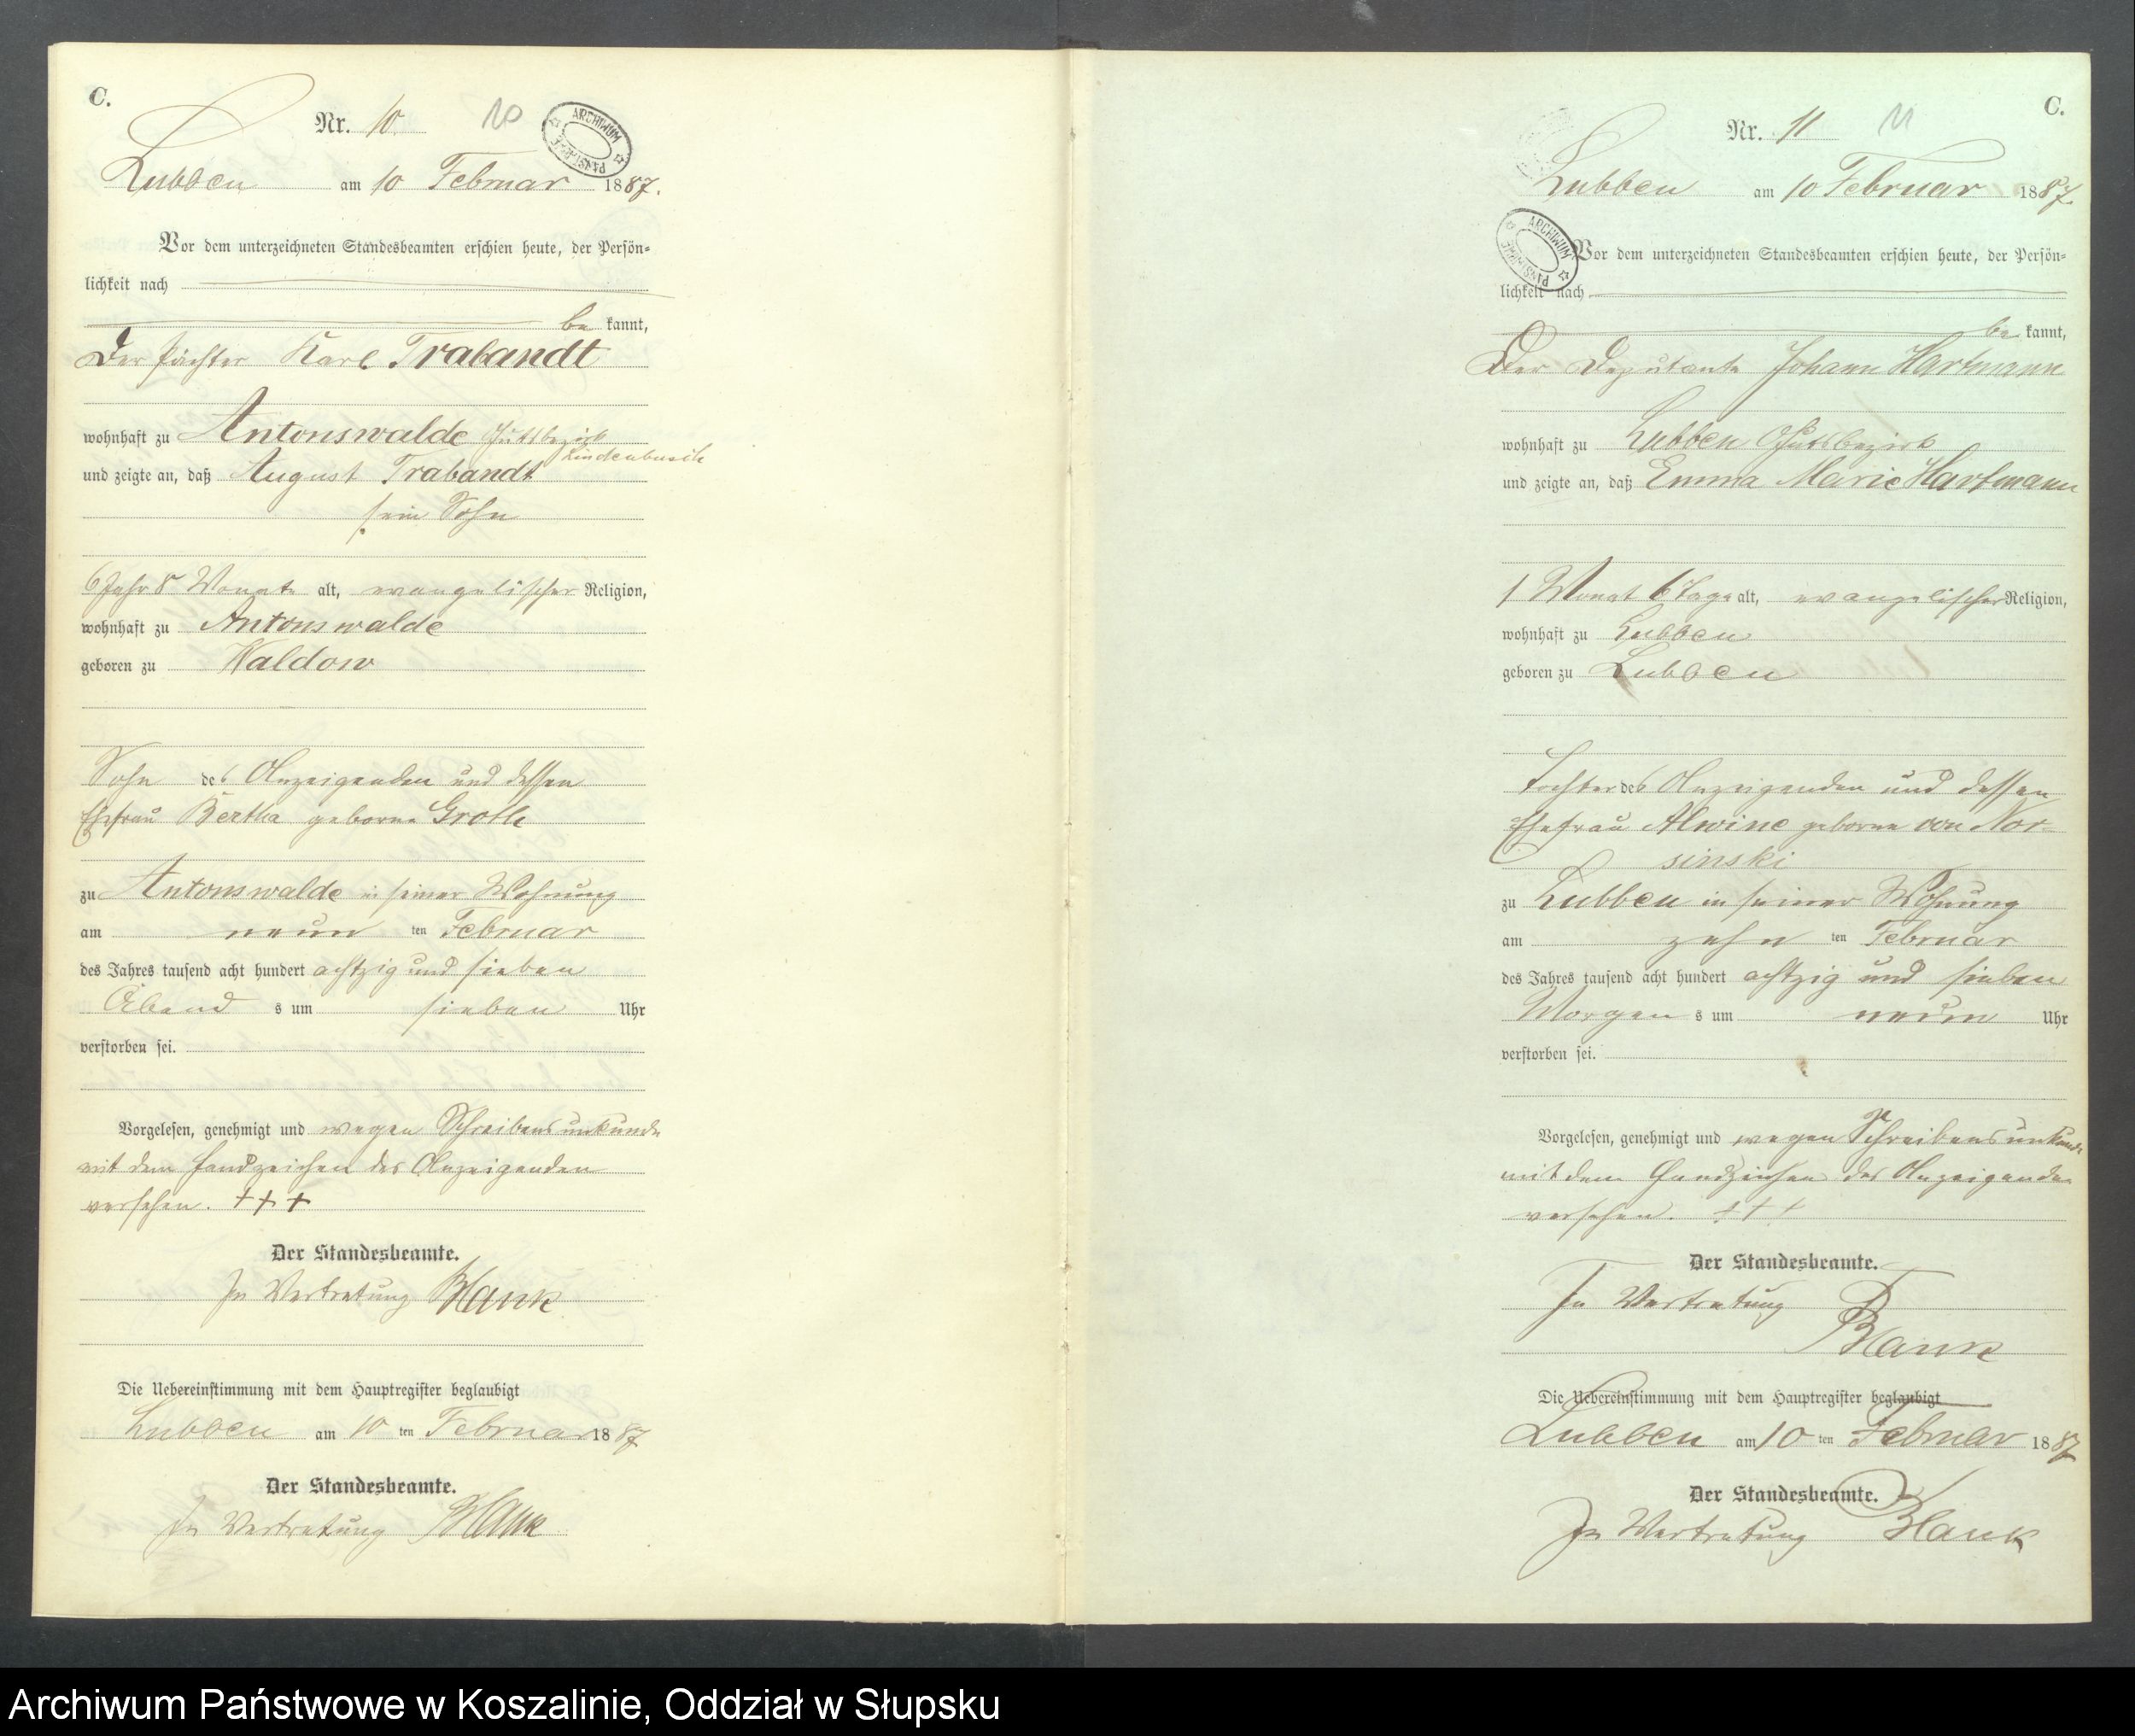 C.
Nr. 10. 10
ARCHIWUM PAŃSTWOWE
Lubben am 10 Februar 1887.
Vor dem unterzeichneten Standesbeamten erschien heute, der Persön-
lichkeit nach
be kannt,
Der Pächter Karl Trabandt
wohnhaft zu Antonswalde Gutsbezirk
Lindenbusch
und zeigte an, daß August Trabandt
sein Sohn
6 Jahr 8 Monate alt, evangelischer Religion,
wohnhaft zu Antonswalde
geboren zu Waldow
Sohn des Anzeigenden und dessen
Ehefrau Bertha geborne Groth
zu Antonswalde in seiner Wohnung
am neun ten Februar
des Jahres tausend acht hundert achtzig und sieben
Abend s um sieben Uhr
verstorben sei.
Vorgelesen, genehmigt und wegen Schreibensunkunde
mit dem Handzeichen des Anzeigenden
versehen. +++
Der Standesbeamte.
In Vertretung Blank
Die Uebereinstimmung mit dem Hauptregister beglaubigt
Lubben am 10 ten Februar 1887
Der Standesbeamte.
In Vertretung Blank
C.
Nr. 11 11
Lubben am 10 Februar 1887.
ARCHIWUM PAŃSTWOWE
Vor dem unterzeichneten Standesbeamten erschien heute, der Persön-
lichkeit nach
be kannt,
Der Deputante Johann Hartmann
wohnhaft zu Lubben Gutsbezirk
und zeigte an, daß Emma Marie Hartmann
1 Monat 6 Tage alt, evangelischer Religion,
wohnhaft zu Lubben
geboren zu Lubben
Tochter des Anzeigenden und dessen
Ehefrau Alwine geborne von Nor-
sinski
zu Lubben in seiner Wohnung
am zehn ten Februar
des Jahres tausend acht hundert achtzig und sieben
Morgen s um neun Uhr
verstorben sei.
Vorgelesen, genehmigt und wegen Schreibensunkunde
mit dem Handzeichen des Anzeigenden
versehen. +++
Der Standesbeamte.
In Vertretung
Blank
Die Uebereinstimmung mit dem Hauptregister beglaubigt
Lubben am 10 ten Februar 1887
Der Standesbeamte.
In Vertretung Blank
Archiwum Państwowe w Koszalinie, Oddział w Słupsku